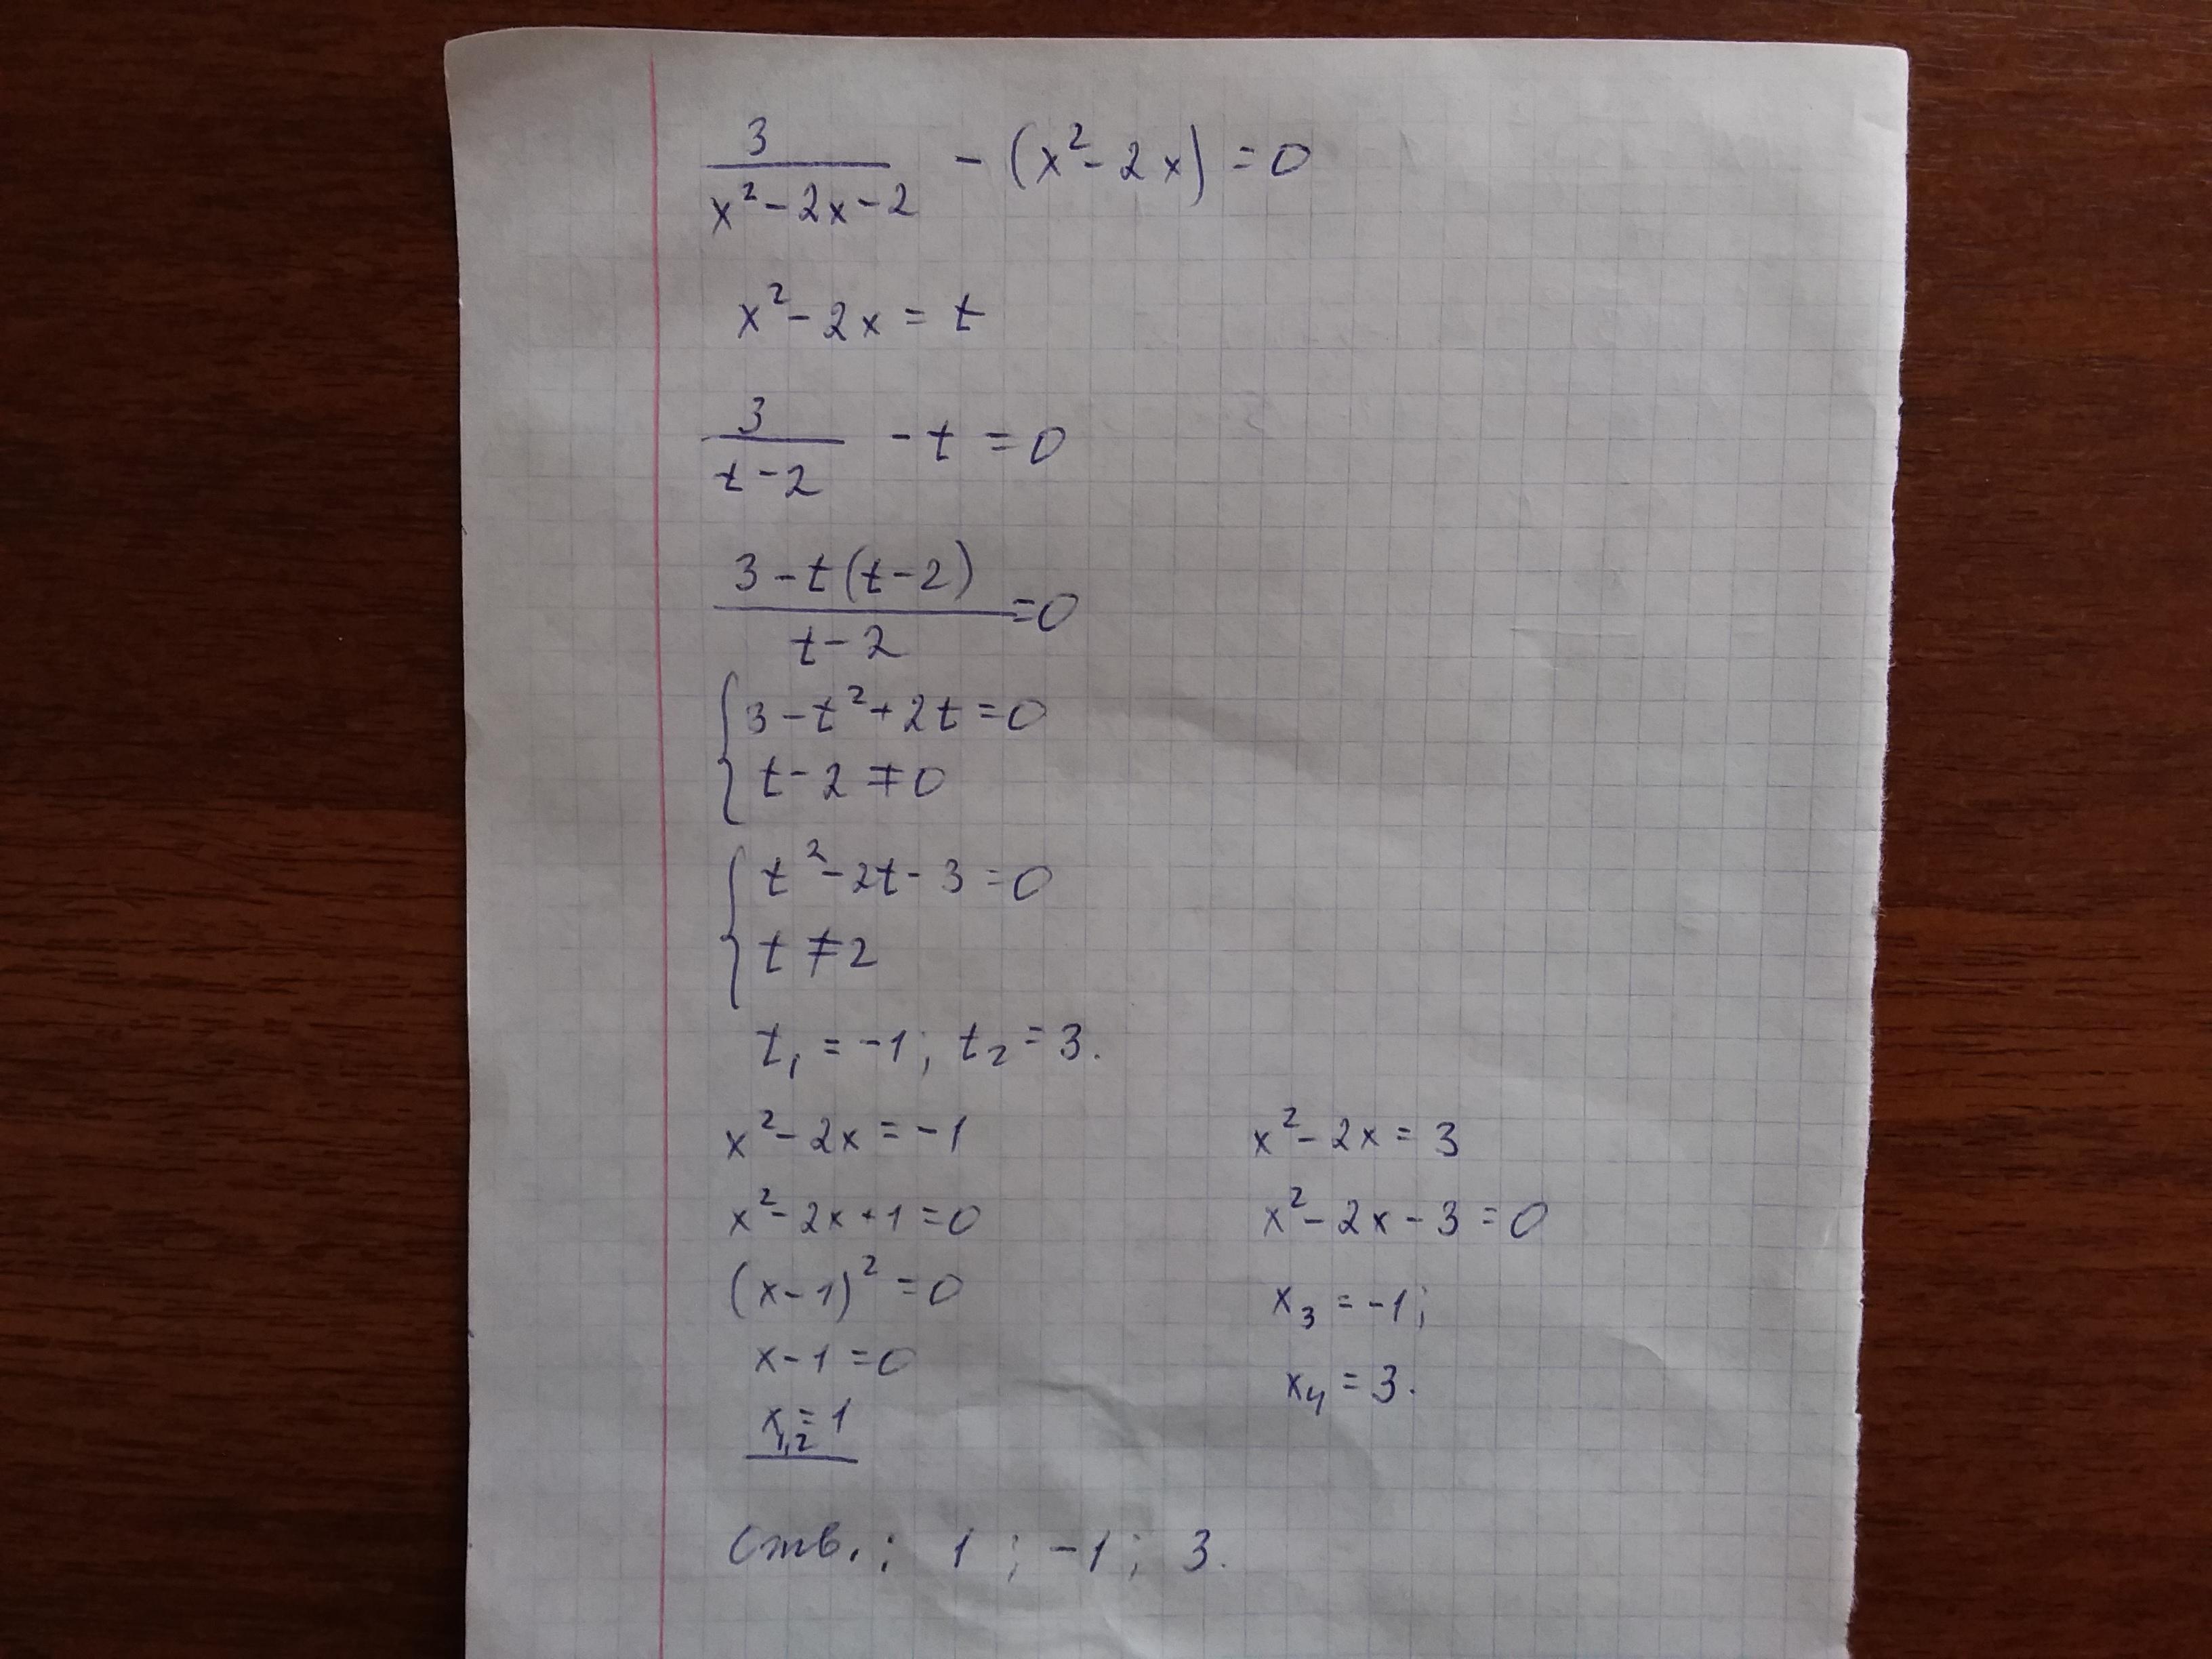 3/(x²-2x-2) - (x²-2x) = 0
x²-2x = t
3/(t-2) - t = 0
(3-t(t-2))/(t-2) = 0
{ 3-t²+2t=0
t-2≠0
{ t²-2t-3=0
t≠2
t₁ = -1; t₂ = 3.
x²-2x = -1
x²-2x+1=0
(x-1)²=0
x-1=0
x₁,₂=1
x²-2x = 3
x²-2x-3=0
x₃ = -1;
x₄ = 3.
Отв.: 1; -1; 3.